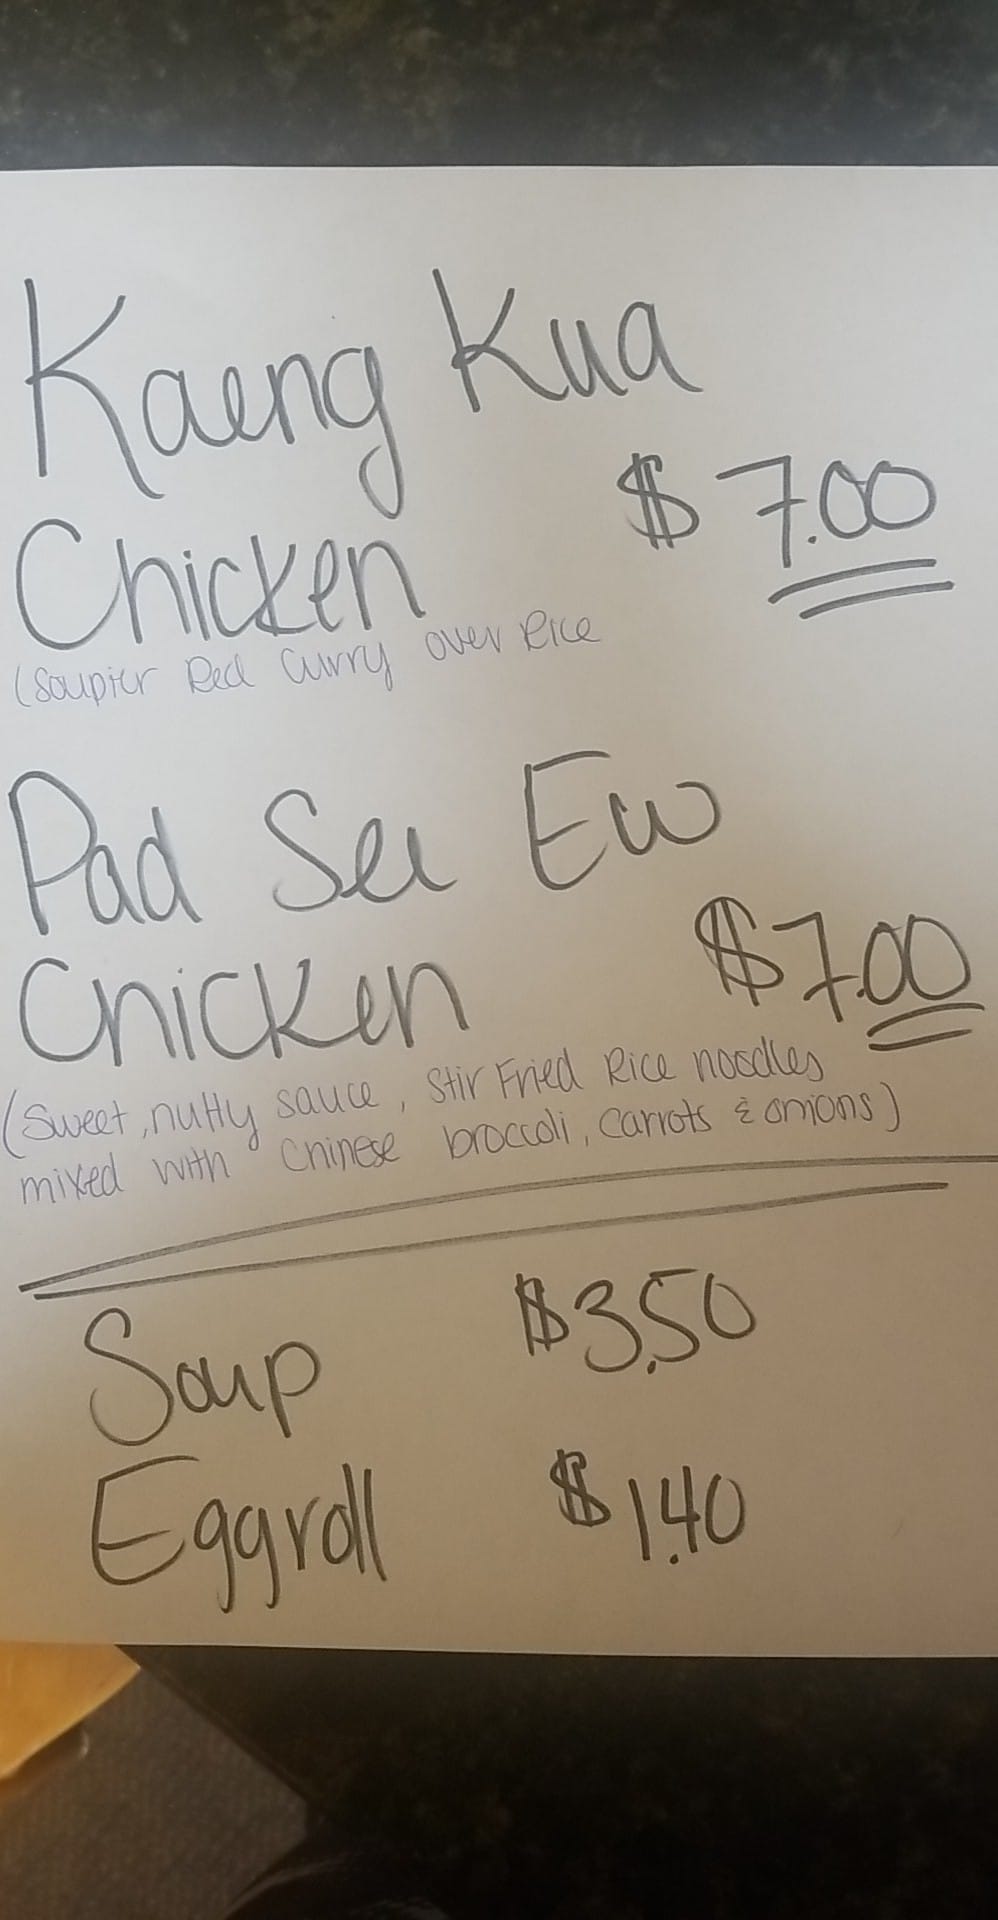 Kaeng Kua
Chicken $7.00
(Soupier Red Curry over Rice
Pad See Ew
Chicken $7.00
(Sweet, nutty sauce, Stir Fried Rice noodles
mixed with Chinese broccoli, carrots & onions)
Soup $3.50
Eggroll $1.40